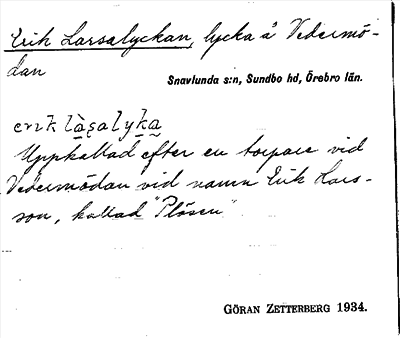 Erik Larsalyckan, lycka å Vedermö-
dan
Snavlunda s:n, Sundbo hd, Örebro län.
Uppkallad efter en torpare vid
Vedermödan vid namn Erik Lars-
son, kallad "Plösen"
GÖRAN ZETTERBERG 1934.